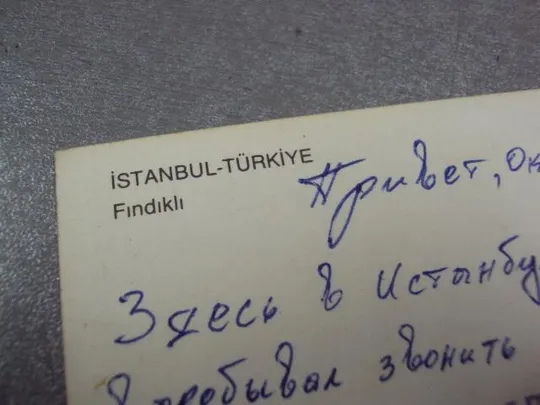 İSTANBUL-TÜRKİYE
Fındıklı
Привет,
Здесь в Истынбу
пробывал звонить